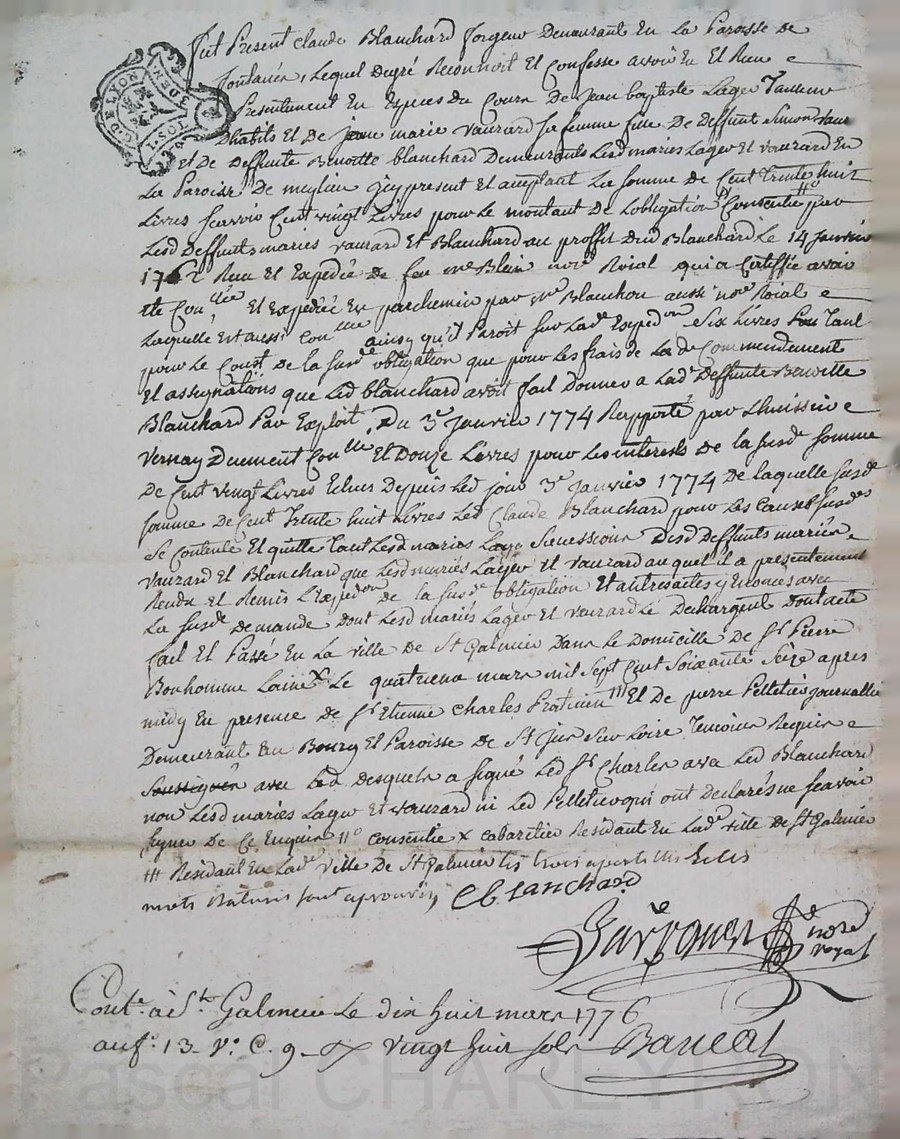 G. D E LYON
3 DEN
Fut Present Claude Blanchard forgeur Demeurant En La Paroisse de
fontanès, Lequel degré Reconnoit Et Confesse avoir Eu Et Recu
Presentement En Especes du Cours De jean baptiste Lager Tailleur
Dhabits Et De jeanne marie vauzard sa femme fille De Deffunt Simon vauz
Et de Deffunte Benoitte blanchard Demeurants Lesd maries Lager Et vauzard En
La Paroisse De meylieu icy present Et acceptant La somme de Cent Trente huit
Livres scavoir Cent vingt Livres pour Le montant de Lobligation Consentie par
Lesd Deffunts maries vauzard Et Blanchard au proffit Dud Blanchard Le 14 janvier
1762 Recu Et Expediée De feu me Blein nore Roial qui a Certiffié avoir
ete Conllée, Et Expediée En parchemin par me Blanchon aussi nore Roial
Laquelle Est aussi Conllée ainsy qu'il Paroit sur Lade Expedon Six Livres Pour Tant
pour Le Coust de la susde obligation que pour Les frais de La de Commendement
Et assignations que Led blanchard avoit fait Donner a Lade Deffunte Benoitte
Blanchard Par Exploit, Du 3e janvier 1774 Rapporté par Lhuissier
Vernay Duement Conllé Et Douze Livres pour Les interests De la susde somme
De Cent vingt Livres Echus Depuis Led jour 3e janvier 1774 De laquelle susde
somme De Cent Trente huit Livres Led Claude Blanchard pour Les Causes susdes
Se Contente Et quitte Tant Lesd maries Successions Desd Deffunts mariés
vauzard Et Blanchard que Lesd mariés Lager Et vauzard auquel il a presentement
Rendu Et Remis LExpedon de la susde obligation Et autres actes y Enoncés avec
La susde demande dont Lesd mariés Lager Et vauzard Le Dechargent Dont acte
fait Et Passé En La ville de St Galmier Dans Le Domicille De Sr Pierre
Bonhomme Lainé x Le quatrieme mars mil Sept Cent Soixante Seize apres
midy En presence de Sr Etienne Charles Praticien III Et De pierre Pelletier journallier
Demeurant Au Bourg Et Paroisse de St Just Sur Loire Temoins Requis
Soussignés avec Led desquels a signé Led Sr Charles avec Led Blanchard
non Lesd maries Lager Et vauzard ni Led Pelletier qui ont Declarés ne Scavoir
Signer De Ce Enquis II° consentie x cabaretier Residant En Lade ville de St Galmier
III Residant En Lade ville De St Galmier Les trois apostilles
mots Raturés sont aprouvés, C blanchard
nore royal
Conté à St Galmier Le dix huit mars 1776
au fo 13 Vo C. 9 vingt huit sols
Pascal CHAREYRON